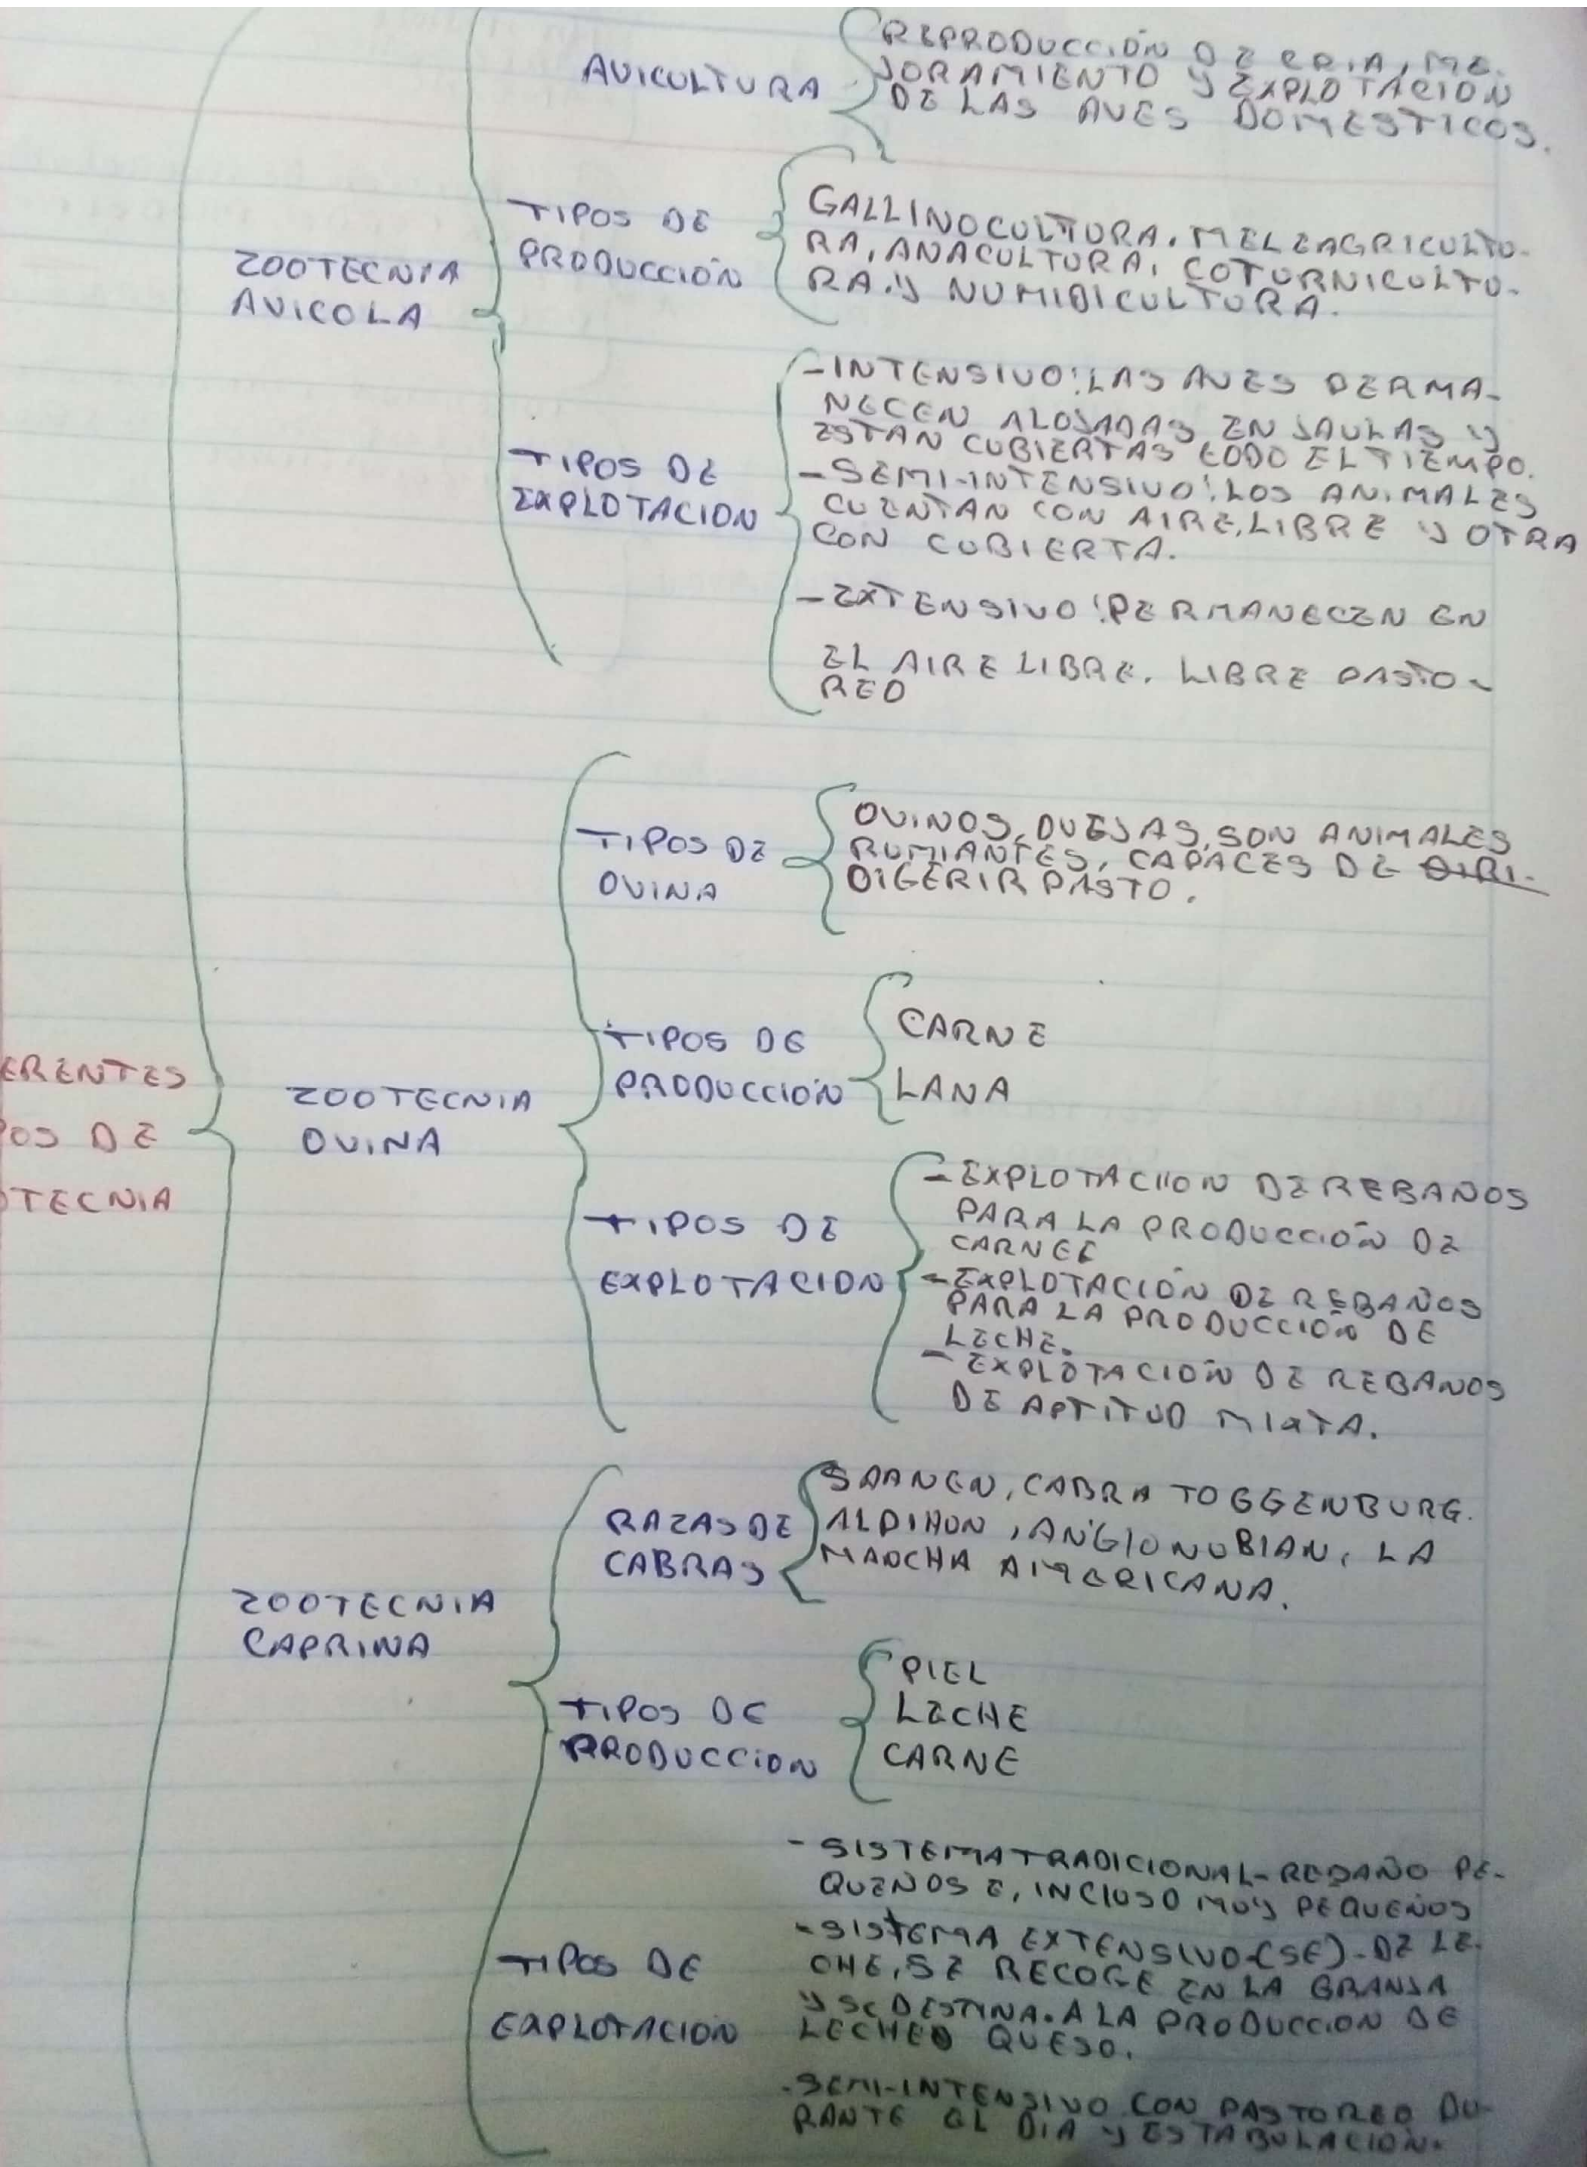 AVICULTURA
REPRODUCCIÓN DE CRIA, ME-
JORAMIENTO Y EXPLOTACIÓN
DE LAS AVES DOMESTICOS.
ZOOTECNIA
AVICOLA
TIPOS DE
PRODUCCIÓN
GALLINOCULTURA, MELEAGRICULTU-
RA, ANACULTURA, COTURNICULTU-
RA. Y NUMIDICULTURA.
TIPOS DE
EXPLOTACION
-INTENSIVO: LAS AVES PERMA-
NECEN ALOJADAS EN JAULAS Y
ESTAN CUBIERTAS TODO EL TIEMPO.
-SEMI-INTENSIVO: LOS ANIMALES
CUENTAN CON AIRE LIBRE Y OTRA
CON CUBIERTA.
-EXTENSIVO: PERMANECEN EN
EL AIRE LIBRE. LIBRE PASTO-
REO
ERENTES
POS DE
OTECNIA
ZOOTECNIA
OVINA
TIPOS DE
OVINA
OVINOS, OVEJAS, SON ANIMALES
RUMIANTES, CAPACES DE DIRI-
DIGERIR PASTO.
TIPOS DE
PRODUCCIÓN
CARNE
LANA
TIPOS DE
EXPLOTACION
-EXPLOTACIION DE REBANOS
PARA LA PRODUCCIÓN DE
CARNEE
-EXPLOTACIÓN DE REBAÑOS
PARA LA PRODUCCIÓN DE
LECHE.
-EXPLOTACIÓN DE REBANOS
DE APTITUD MIXTA.
ZOOTECNIA
CAPRINA
RAZAS DE
CABRAS
SAANEN, CABRA TOGGENBURG.
ALPIHON, ANGIONUBIAN, LA
MAOCHA AMERICANA.
TIPOS DE
PRODUCCION
PIEL
LECHE
CARNE
TIPOS DE
EXPLOTACION
-SISTEMA TRADICIONAL-REBAÑO PE-
QUENOS E, INCLUSO MUY PEQUEÑOS
-SISTEMA EXTENSIVO-(SE)-DE LE-
CHE, SE RECOGE EN LA GRANJA
Y SE DESTINA. A LA PRODUCCION DE
LECHEO QUESO.
-SEMI-INTENSIVO CON PASTOREO DU-
RANTE EL DIA Y ESTABULACION.